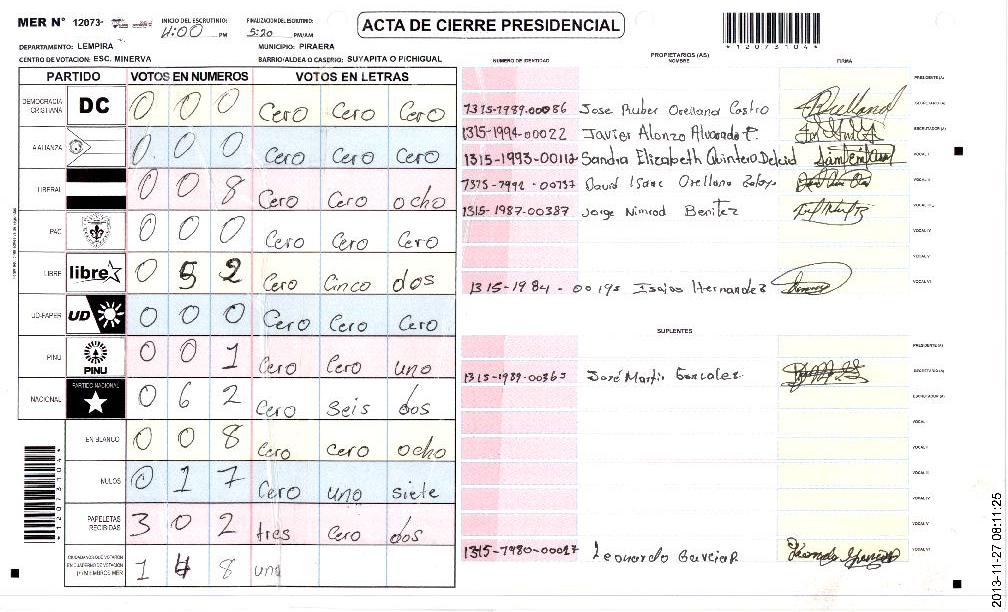 MER N° 12073 INICIO DEL ESCRUTINIO: 4:00 PM FINALIZACION DEL ESCRUTINIO: 5:20 PM/AM ACTA DE CIERRE PRESIDENCIAL
*1207310 4*
DEPARTAMENTO: LEMPIRA MUNICIPIO: PIRAERA
CENTRO DE VOTACION: ESC. MINERVA BARRIO/ALDEA O CASERIO: SUYAPITA O PICHIGUAL
PARTIDO VOTOS EN NUMEROS VOTOS EN LETRAS
DEMOCRACIA CRISTIANA DC 0 0 0 Cero Cero Cero
AALIANZA 0 0 0 Cero Cero Cero
LIBERAL 0 0 8 Cero Cero ocho
PAC 0 0 0 Cero Cero Cero
LIBRE libre 0 5 2 Cero Cinco dos
UD-FAPER UD 0 0 0 Cero Cero Cero
PINU PINU 0 0 1 Cero Cero uno
NACIONAL PARTIDO NACIONAL 0 6 2 Cero Seis dos
EN BLANCO 0 0 8 Cero Cero ocho
NULOS 0 1 7 Cero uno siete
PAPELETAS RECIBIDAS 3 0 2 tres Cero dos
CIUDADANOS QUE VOTARON EN CUADERNO DE VOTACION (+) MIEMBROS MER 1 4 8 uno
PROPIETARIOS (AS)
NUMERO DE IDENTIDAD NOMBRE FIRMA
PRESIDENTE(A)
1315-1989-00086 Jose Ruber Orellana Castro SECRETARIO(A)
1315-1994-00022 Javier Alonzo Alvarado F. ESCRUTADOR(A)
1315-1993-00112 Sandra Elizabeth Quintero Delcid VOCAL I
David Isaac Orellana VOCAL II
1315-1987-00387 Jorge Nimrod Benitez VOCAL III
VOCAL IV
VOCAL V
1315-1984-00195 Isaias Hernandez VOCAL VI
SUPLENTES
PRESIDENTE(A)
1315-1989-00365 José Martir Gonzales SECRETARIO(A)
ESCRUTADOR(A)
VOCAL I
VOCAL II
VOCAL III
VOCAL IV
VOCAL V
1315-1980-00017 Leonardo Garcia VOCAL VI
2013-11-27 08:11:25